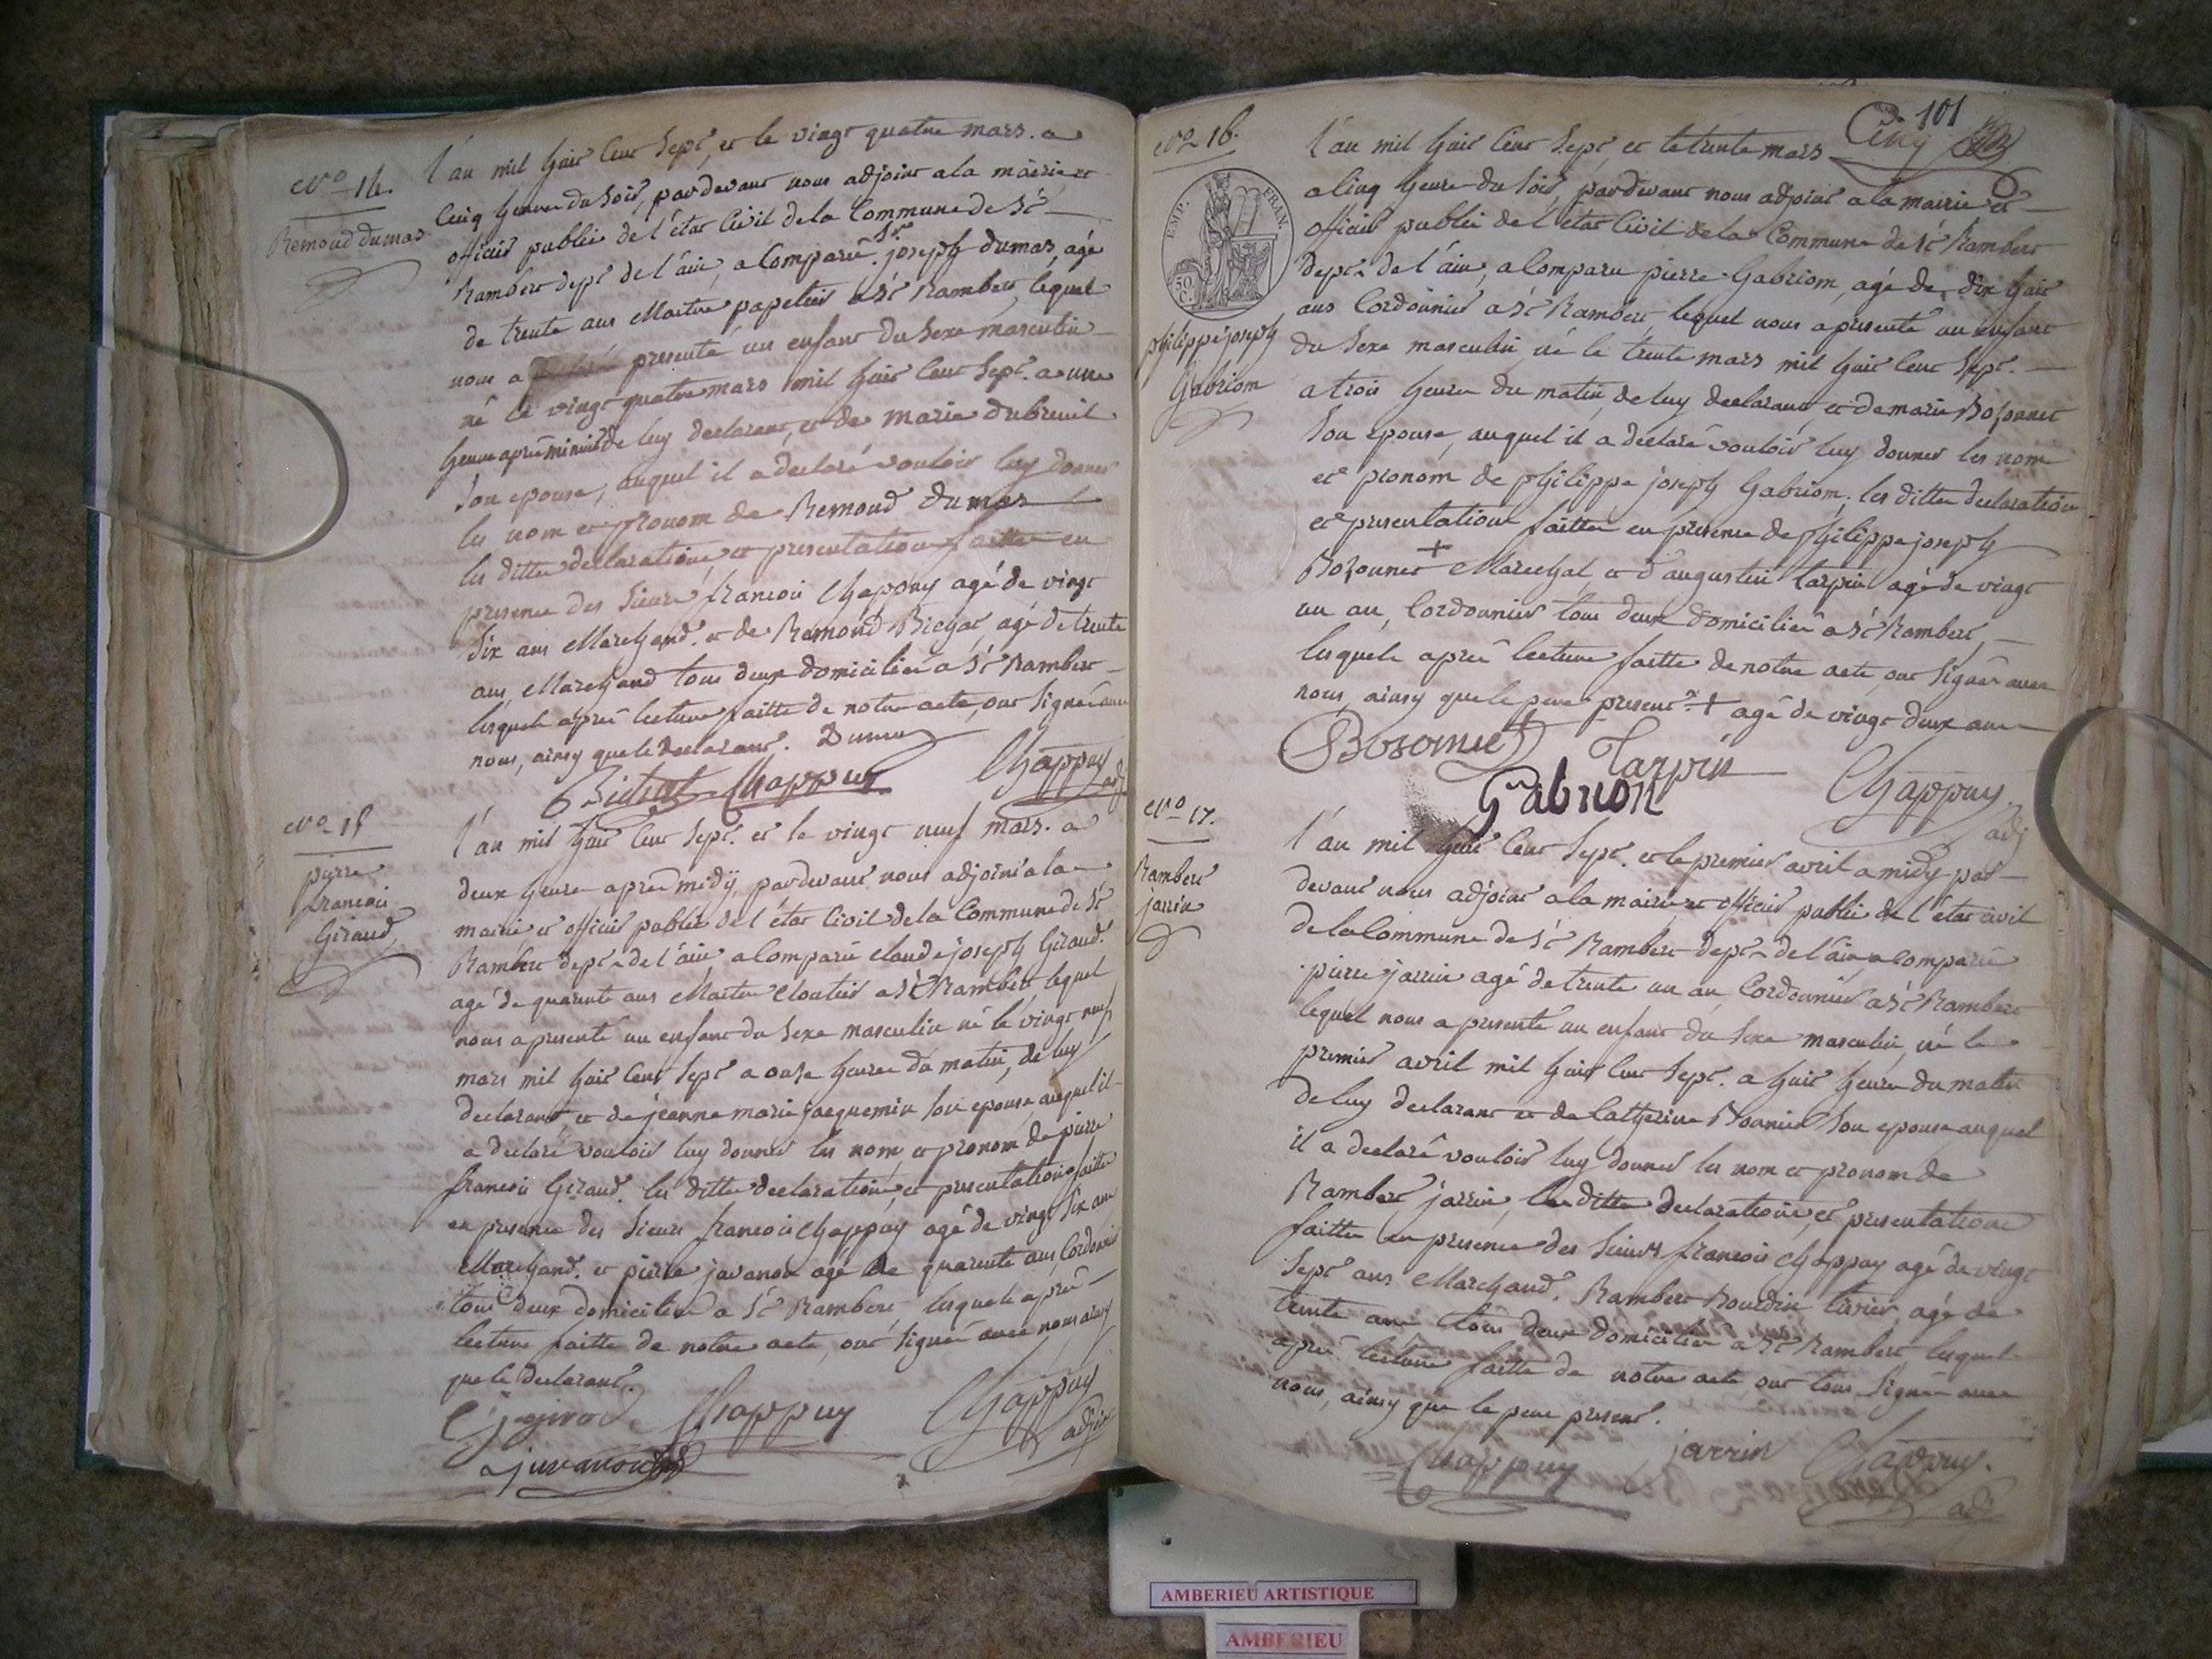 No 14.
Remond dumas
l'an mil huit cent sept, et le vingt quatre mars. a
Cinq heures du soir, pardevant nous adjoint a la mairie et
officier public de l'état Civil de la Commune de St
Rambert dept de l'ain, a Comparu Sr joseph dumas, agé
de trente ans Maitre papetier a St Rambert, lequel
nous a presenté un enfant du Sexe masculin
né le vingt quatre mars mil huit cent Sept. a une
heure après minuit de luy declarant, et de marie dubreuil
Son epouse, auquel il a declaré vouloir luy donner
les nom et pronom de Remond Dumas
les dittes declarations et presentation faittes en
presence des Sieurs françois Chappuy agé de vingt
Six ans Marchand. et de Remond Bichat, agé de trente
ans, Marchand tous deux domiciliés a St Rambert
lesquels après lecture faitte de notre acte, ont Signé avec
nous, ainsy que le declarant. Dumas
Bichat Chappuy Chappuy
adj
No 15
pierre
francois
Giraud
l'an mil huit Cent Sept. et le vingt neuf mars. a
deux heures après midÿ, pardevant nous adjoint a la
mairie et officier public de l'état Civil de la Commune de St
Rambert dept de l'ain a Comparu claude joseph Giraud.
agé de quarante ans Maitre Cloutier a St Rambert lequel
nous a presenté un enfant du Sexe masculin né le vingt neuf
mars mil huit Cent Sept a onze heures du matin, de luy
declarant, et de jeanne marie jacquemin Son epouse, auquel il
a declaré vouloir luy donner les nom et pronom de pierre
francois Giraud. les dittes declarations et presentation faittes
en presence des Sieurs francois Chappuy agé de vingt Six ans
Marchand. et pierre javanon agé de quarante ans, Cordonnier
tous deux domiciliés a St Rambert, lesquels après
lecture faitte de notre acte, ont Signé avec nous ainsy
que le declarant.
Chappuy Chappuy
javanon adjoint
101
No 16.
EMP. FRAN.
50 C.
philippe joseph
Gabriom
l'an mil huit Cent Sept, et le trente mars
a Cinq heures du Soir, pardevant nous adjoint a la mairie et
officier public de l'état Civil de la Commune de St Rambert
dept de l'ain, a Comparu pierre Gabriom, agé de dix huit
ans Cordonnier a St Rambert, lequel nous a presenté un enfant
du Sexe masculin né le trente mars mil huit Cent Sept.
a trois heures du matin, de luy declarant, et de marie Bozonnet
Son epouse, auquel il a declaré vouloir luy donner les nom
et pronom de philippe joseph Gabriom. les dittes declaration
et presentation faittes en presence de philippe joseph
Bozonnet + Marechal, et d'augustin tarpin agé de vingt
un an, Cordonnier tous deux domiciliés a St Rambert,
lesquels après lecture faitte de notre acte, ont Signé avec
nous, ainsy que le pere present. + agé de vingt deux ans
Bozonnet Tarpin
Gabrion Chappuy
adj
No 17.
Rambert
jarrin
l'an mil huit Cent Sept. et le premier avril a midy par
devant nous adjoint a la mairie et officier public de l'état civil
de la Commune de St Rambert dept de l'ain a Comparu
pierre jarrin agé de trente un an Cordonnier a St Rambert
lequel nous a presenté un enfant du Sexe masculin, né le
premier avril mil huit Cent Sept. a huit heures du matin
de luy declarant et de Catherine Bonnier Son epouse auquel
il a declaré vouloir luy donner les nom et pronom de
Rambert jarrin, les dittes declaration et presentation
faittes en presence des Sieurs francois Chappuy agé de vingt
Sept ans Marchand. Rambert Bourdin agé de
trente ans tous deux domiciliés a St Rambert, lesquels
après lecture faitte de notre acte ont tous Signé avec
nous, ainsy que le pere present.
Chappuy jarrin Chappuy.
adj
AMBERIEU ARTISTIQUE
AMBERIEU